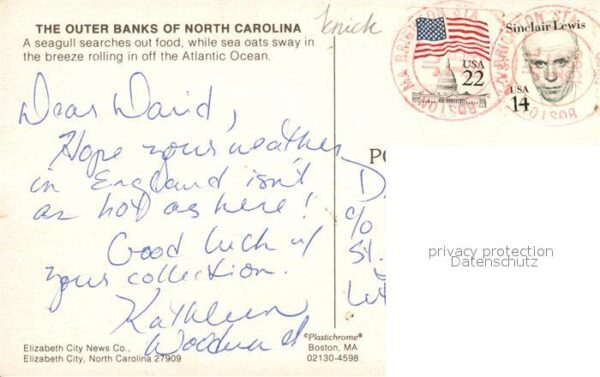 THE OUTER BANKS OF NORTH CAROLINA
A seagull searches out food, while sea oats sway in
the breeze rolling in off the Atlantic Ocean.
Dear David,
Hope your weather
in England isn't
as hot as here!
Good luck w/
your collection.
Kathleen
Woodward
Elizabeth City News Co.,
Elizabeth City, North Carolina 27909
©Plastichrome®
Boston, MA
02130-4598
USA
22
Sinclair Lewis
USA
14
BRIGHTON STA
BOSTON MA
PO
D
c/o
St.
privacy protection
Datenschutz